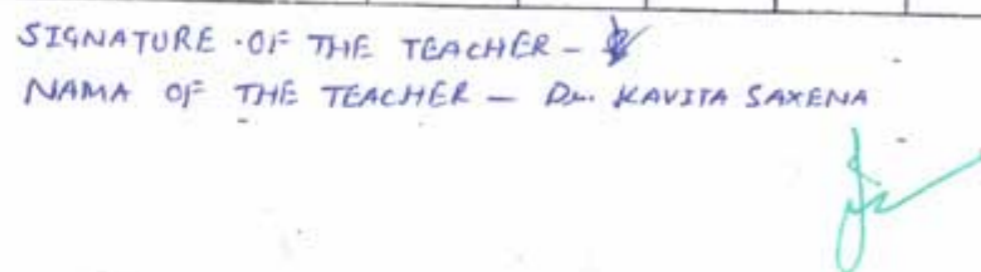 SIGNATURE OF THE TEACHER -
NAMA OF THE TEACHER - Dr. KAVITA SAXENA